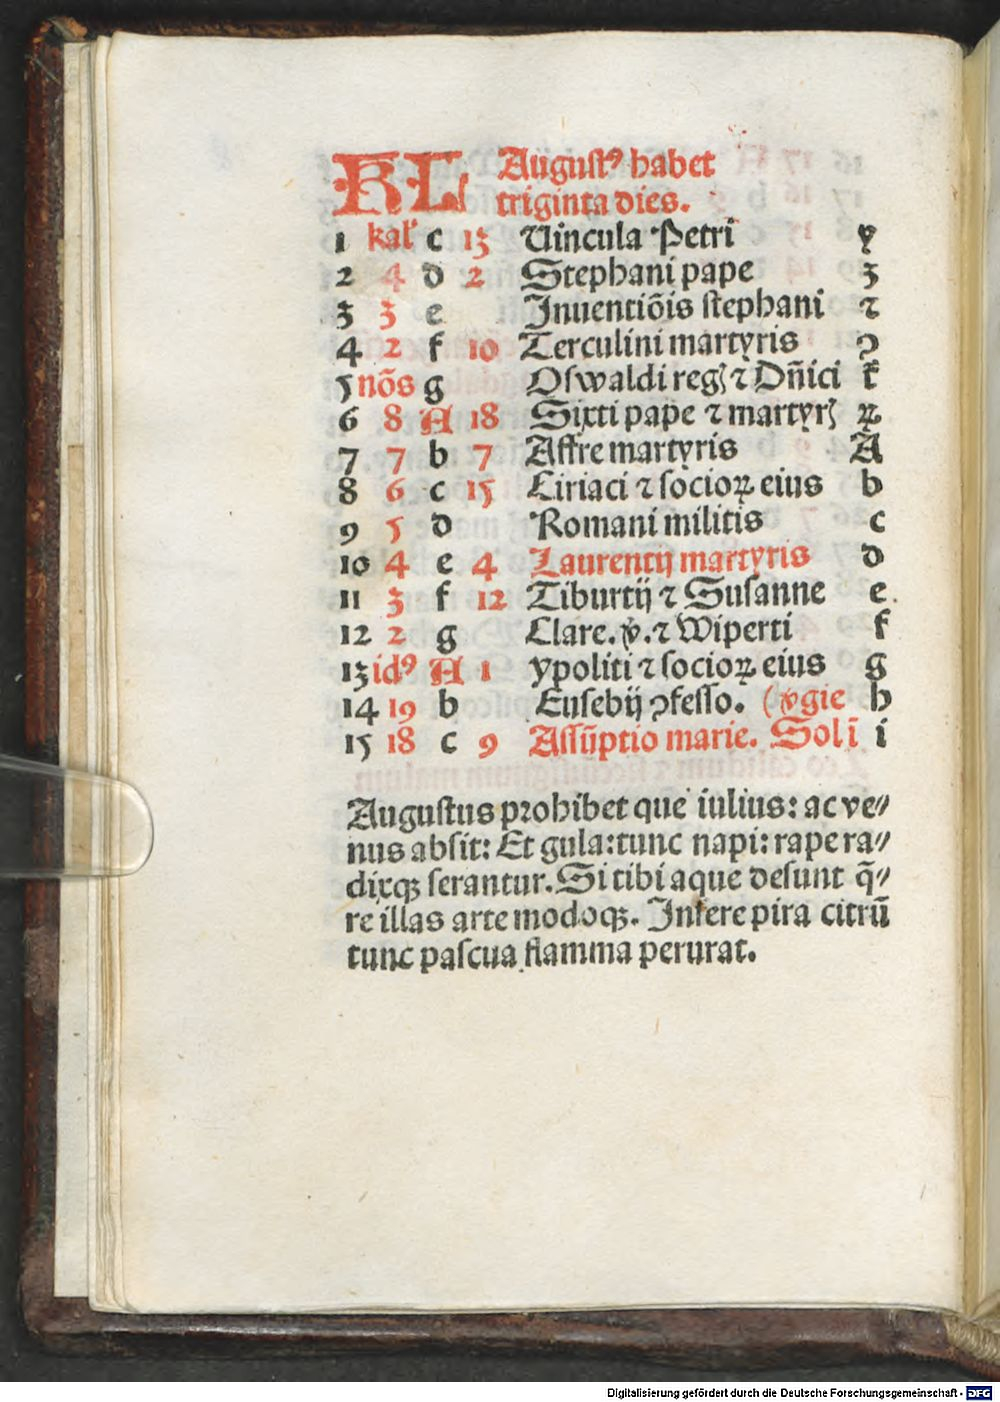 KL Augustꝰ habet
triginta dies.
1 kal' c 13 Vincula Petri y
2 4 d 2 Stephani pape z
3 3 e Inuentiõis stephani ⁊
4 2 f 10 Terculini martyris ꝯ
5 nõs g Oswaldi regꝭ ⁊ Dñici
6 8 A 18 Sixti pape ⁊ martyrꝭ ꝝ
7 7 b 7 Affre martyris A
8 6 c 15 Ciriaci ⁊ socioꝝ eius b
9 5 d Romani militis c
10 4 e 4 Laurentij martyris d
11 3 f 12 Tiburtij ⁊ Susanne e
12 2 g Clare. v̾. ⁊ Wiperti f
13 idꝰ A 1 ypoliti ⁊ socioꝝ eius g
14 19 b Eusebij ꝯfesso. (v̾gie h
15 18 c 9 Assũptio marie. Sol ĩ i
Augustus prohibet que iulius: ac ve⸗
nus absit: Et gula: tunc napi: rape ra⸗
dixqꝫ serantur. Si tibi aque desunt q̃⸗
re illas arte modoqꝫ. Insere pira citrũ
tunc pascua flamma perurat.
Digitalisierung gefördert durch die Deutsche Forschungsgemeinschaft - DFG